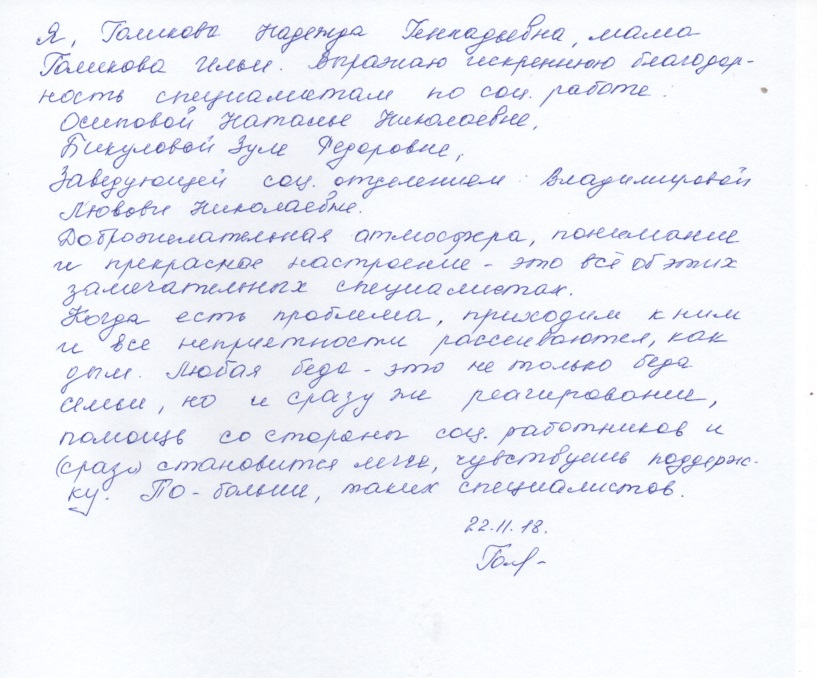 Я, Голикова Надежда Геннадьевна, мама
Голикова Ильи. Выражаю искреннюю благодар-
ность специалистам по соц. работе:
Осиповой Наталье Николаевне,
Бикуловой Зуле Федоровне,
Заведующей соц. отделением: Владимировой
Любови Николаевне.
Доброжелательная атмосфера, понимание
и прекрасное настроение - это всё об этих
замечательных специалистах.
Когда есть проблема, приходим к ним
и все неприятности рассеиваются, как
дым. Любая беда - это не только беда
семьи, но и сразу же реагирование,
помощь со стороны соц. работников и
(сразу) становится легче, чувствуешь поддерж-
ку. По-больше, таких специалистов.
22.11.18.